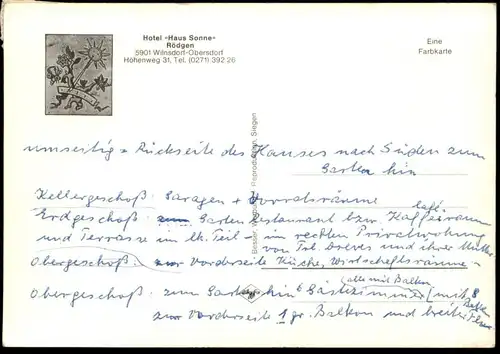 Hotel »Haus Sonne«
Rödgen
5901 Wilnsdorf-Obersdorf
Höhenweg 31, Tel. (0271) 392 26
Eine
Farbkarte
umseitig = Rückseite des Hauses nach Süden zum
Garten hin
Kellergeschoß: Garagen + Vorratsräume
Erdgeschoß: zum Garten Restaurant bzw. Kaffeeraum
Café
und Terrasse im lk. Teil - im rechten Privatwohnung
von und ihrer Mutter
Obergeschoß: zur Vorderseite Küche, Wirtschaftsräume
(alle mit Balkon
Obergeschoß: zum Garten hin 6 Gästezimmer (mit 8
Betten
zur Vorderseite 1 gr. Balkon und breiter